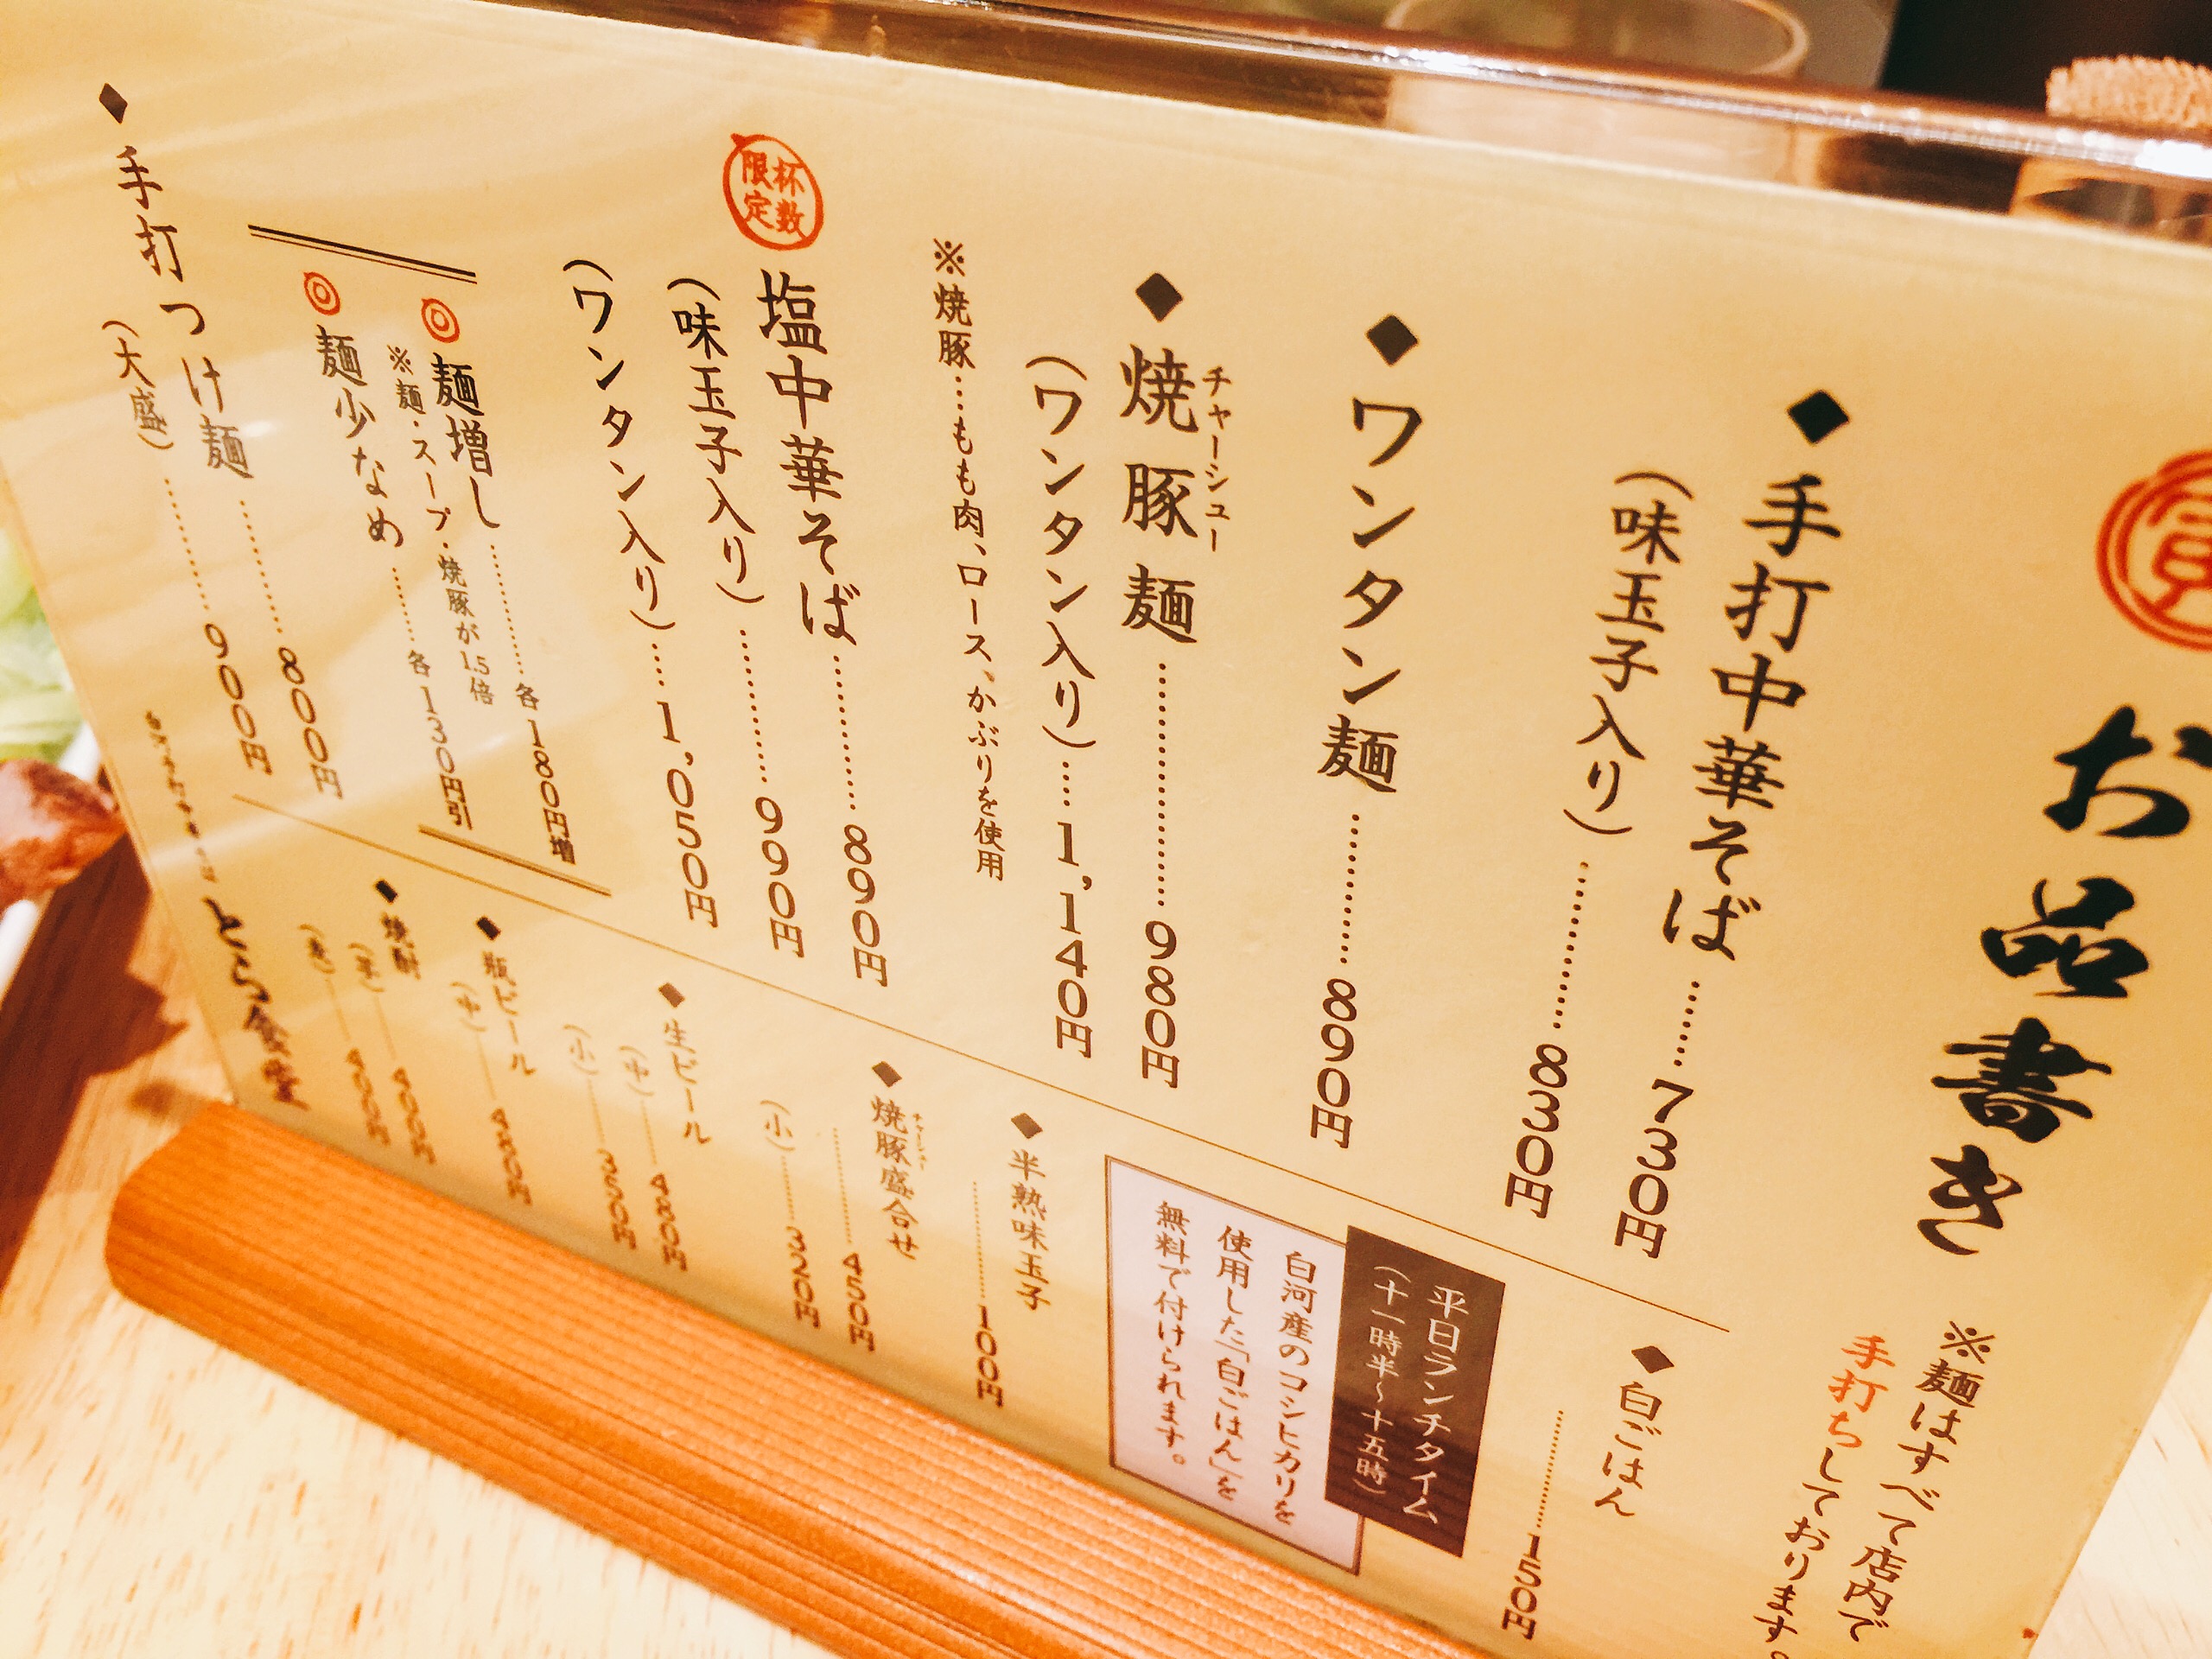 お品書き
※麺はすべて店内で
手打ちしております。
◆手打中華そば……730円
(味玉子入り)………830円
◆ワンタン麺………890円
◆焼豚麺…………980円
チャーシュー
(ワンタン入り)……1,140円
※焼豚…もも肉、ロース、かぶりを使用
杯数
限定
塩中華そば………890円
(味玉子入り)………990円
(ワンタン入り)……1,050円
麺増し………各180円増
※麺・スープ・焼豚が1.5倍
麺少なめ……各130円引
◆手打つけ麺………800円
(大盛)………900円
◆白ごはん
………150円
平日ランチタイム
(十一時半〜十五時)
白河産のコシヒカリを
使用した「白ごはん」を
無料で付けられます。
◆半熟味玉子
………100円
◆焼豚盛合せ
チャーシュー
………450円
(小)………320円
◆生ビール
(中)………480円
(小)………350円
◆瓶ビール
(中)………480円
◆焼酎
(芋)………400円
(麦)………400円
とら食堂